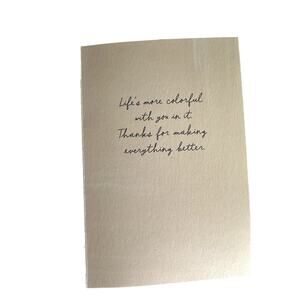 Life's more colorful
with you in it.
Thanks for making
everything better.